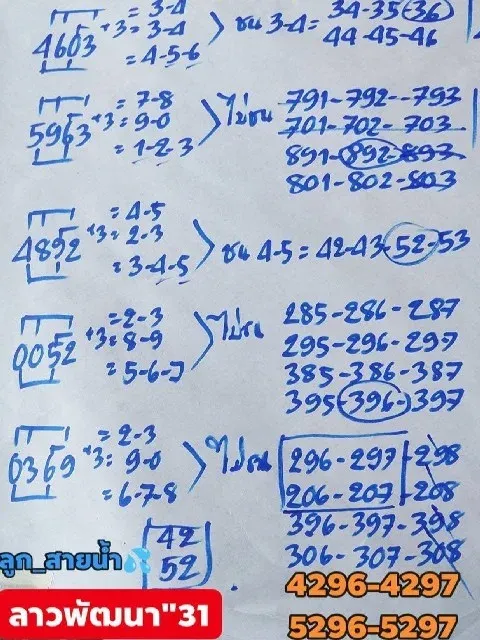 = 3-4 34-35-36
4603 +3 = 3-4 ชน 3-4 = 44-45-46
= 4-5-6
= 7-8 791-792-793
5963 +3 = 9-0 ไม่ชน 701-702-703
= 1-2-3 891-892-893
801-802-803
= 4-5
4892 +3 = 2-3 ชน 4-5 = 42-43-52-53
= 3-4-5
= 2-3 285-286-287
0052 +3 = 8-9 ไม่ชน 295-296-297
= 5-6-7 385-386-387
395-396-397
= 2-3
0369 +3 = 9-0 ไม่ชน 296-297-298
= 6-7-8 206-207-208
396-397-398
42 306-307-308
52
ลูก_สายน้ำ💦
ลาวพัฒนา"31
4296-4297
5296-5297